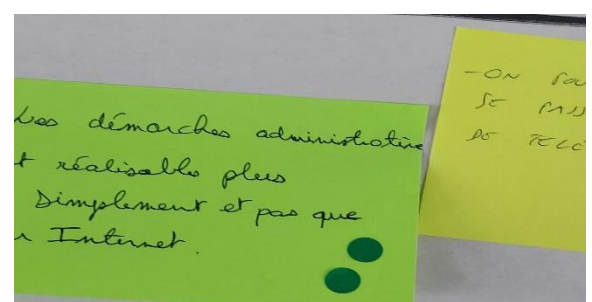 Les démarches administrative
t réalisable plus
simplement et pas que
Internet.
-ON
SE
DE